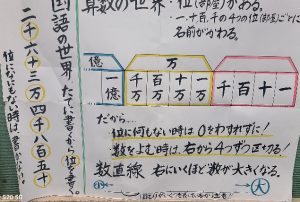 算数の世界 位(部屋)がある。
一・十・百・千の4つの位(部屋)ごとに
名前がかわる。
国語の世界 たてに書くから位を書く。
二千六十三万四千八百五十
位になにもない時は、書かない
億 万
一億 千万 百万 十万 一万 千 百 十 一
だから…
位に何もない時は0をわすれずに!
数をよむ時は、右から4つずつ区切る!
数直線 右にいくほど数が大きくなる。
小 大